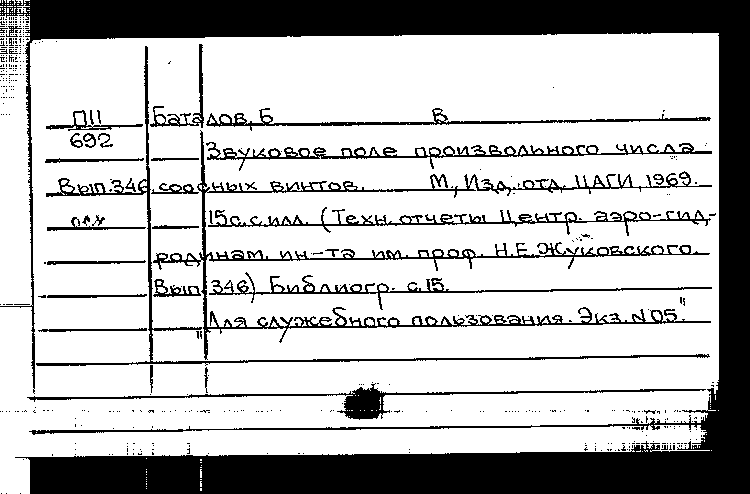 П11 Баталов, Б В
692
Звуковое поле произвольного числа
Вып.346 соосных винтов. М., Изд. отд. ЦАГИ, 1969.
15с.с илл. (Техн. отчеты Центр. аэро-гид-
родинам. ин-та им. проф. Н.Е.Жуковского.
Вып. 346) Библиогр. с.15.
"Для служебного пользования. Экз. N 05."